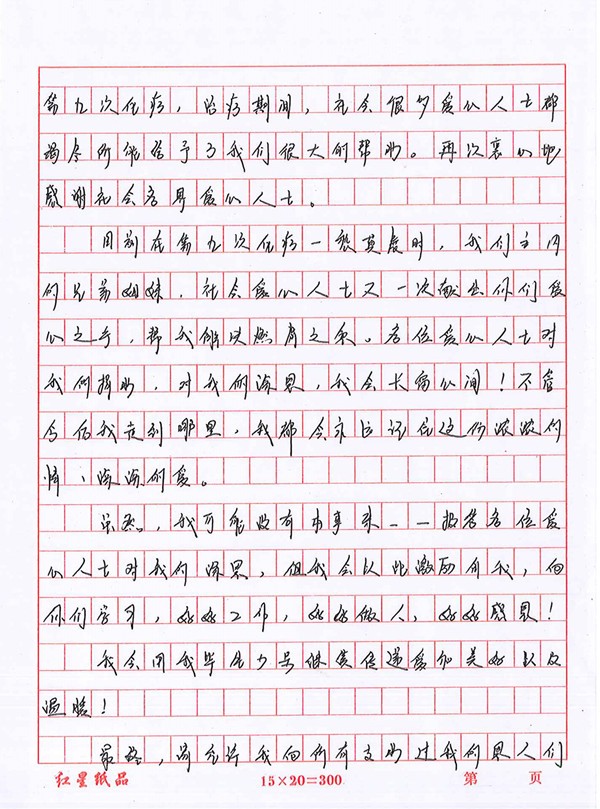 第九次住病,治病期间,社会很多爱心人士都
竭尽所能给予了我们很大的帮助。再次衷心地
感谢社会各界爱心人士。
在第九次住病一筹莫展时,我们主内
的兄弟姐妹、社会爱心人士又一次献出你们爱
心之手,帮我解决燃眉之急。各位爱心人士对
我的捐助,对我的深恩,我会长痛心间!不管
今后我走到哪里,我都会永远记住这份浓浓的
情、深深的爱。
虽然,我可能没有本事来一一报答各位爱
心人士对我的深恩,但我会以此激励自我,向
你们学习,好好工作,好好做人,好好感恩!
我会用我毕生力量继续传递爱和美好以及
温暖!
最终,请允许我向所有支助过我的恩人们
红星纸品 15×20=300 第 页